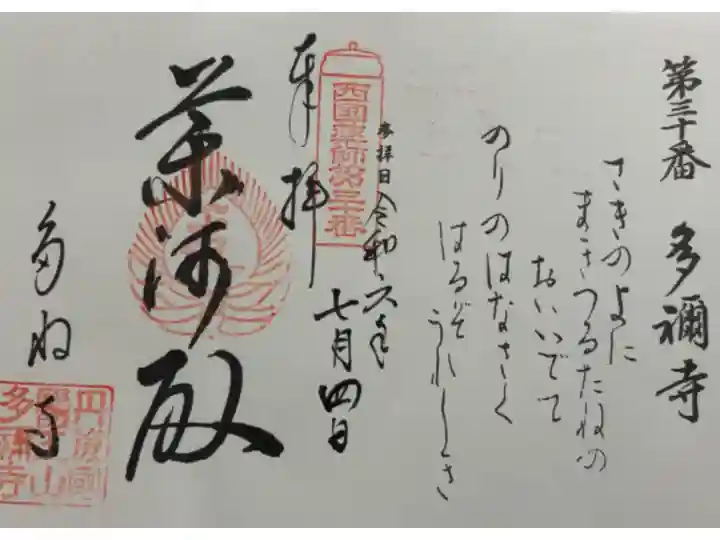 第三十番 多禰寺
さきのよに
まきつるたねの
おいいでて
のりのはなさく
はるぞうれしき
参拝日 令和六年
七月四日
西國薬師第三十番
奉拝
薬師殿
多祢寺
多禰寺